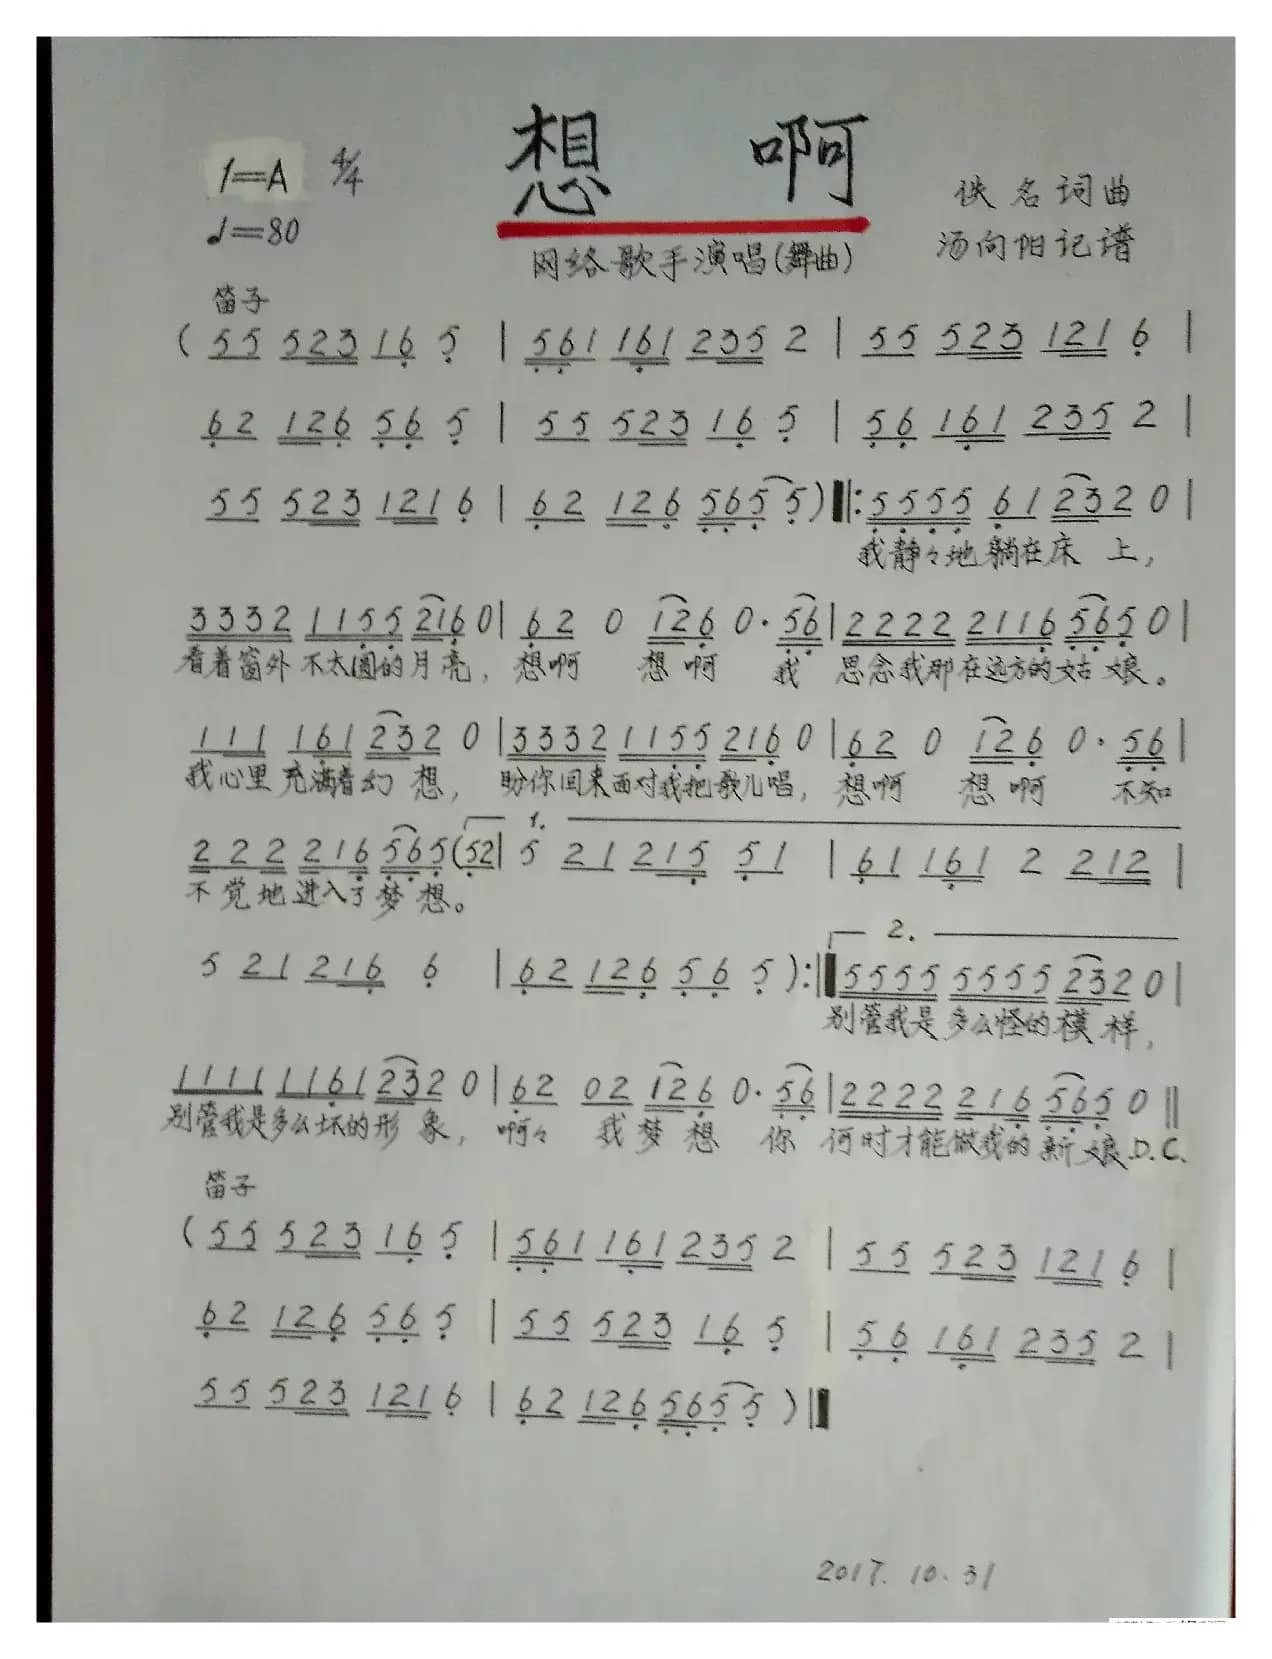 想 啊
1=A 4/4
♩=80
佚名词曲
汤向阳记谱
网络歌手演唱(舞曲)
笛子
( 5 5 5 2 3 1 6 5 | 5 6 1 1 6 1 2 3 5 2 | 5 5 5 2 3 1 2 1 6 |
6 2 1 2 6 5 6 5 | 5 5 5 2 3 1 6 5 | 5 6 1 6 1 2 3 5 2 |
5 5 5 2 3 1 2 1 6 | 6 2 1 2 6 5 6 5 5 ) ‖: 5 5 5 5 6 1 2 3 2 0 |
我静々地躺在床 上,
3 3 3 2 1 1 5 5 2 1 6 0 | 6 2 0 1 2 6 0 · 5 6 | 2 2 2 2 2 1 1 6 5 6 5 0 |
看着窗外 不太圆的月亮, 想啊 想 啊 我 思念我那在远方的姑 娘。
1 1 1 1 6 1 2 3 2 0 | 3 3 3 2 1 1 5 5 2 1 6 0 | 6 2 0 1 2 6 0 · 5 6 |
我心里 充满着幻 想, 盼你回来面对我把歌儿唱, 想啊 想 啊 不知
1.
2 2 2 2 1 6 5 6 5 (5 2 | 5 2 1 2 1 5 5 1 | 6 1 1 6 1 2 2 1 2 |
不 觉 地 进入了 梦 想。
2.
5 2 1 2 1 6 6 | 6 2 1 2 6 5 6 5 ) :‖ 5 5 5 5 5 5 5 5 2 3 2 0 |
别管我是 多么怪的 模 样,
1 1 1 1 1 1 6 1 2 3 2 0 | 6 2 0 2 1 2 6 0 · 5 6 | 2 2 2 2 2 1 6 5 6 5 0 ‖
别管我是多么坏的 形 象, 啊々 我 梦 想 你 何时才能做我的 新 娘. D.C.
笛子
( 5 5 5 2 3 1 6 5 | 5 6 1 1 6 1 2 3 5 2 | 5 5 5 2 3 1 2 1 6 |
6 2 1 2 6 5 6 5 | 5 5 5 2 3 1 6 5 | 5 6 1 6 1 2 3 5 2 |
5 5 5 2 3 1 2 1 6 | 6 2 1 2 6 5 6 5 5 ) ‖
2017. 10. 31